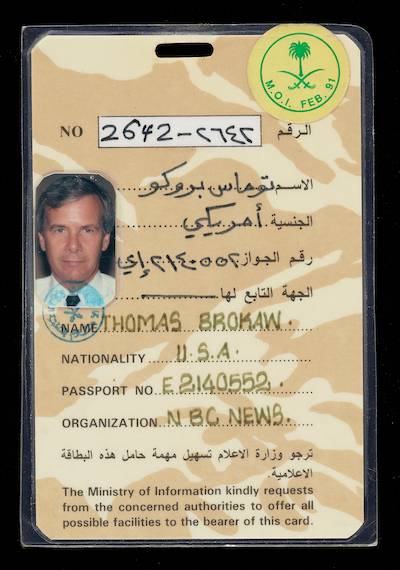 M.O.I. FEB. 91
NO 2642-٢٦٤٢ الرقم
الاسم توماس بروكو
الجنسية أمريكي
رقم الجواز ٢١٤٠٥٥٢ إي
الجهة التابع لها
NAME THOMAS BROKAW.
NATIONALITY U.S.A.
PASSPORT NO E2140552.
ORGANIZATION NBC NEWS.
ترجو وزارة الاعلام تسهيل مهمة حامل هذه البطاقة
الاعلامية.
The Ministry of Information kindly requests
from the concerned authorities to offer all
possible facilities to the bearer of this card.